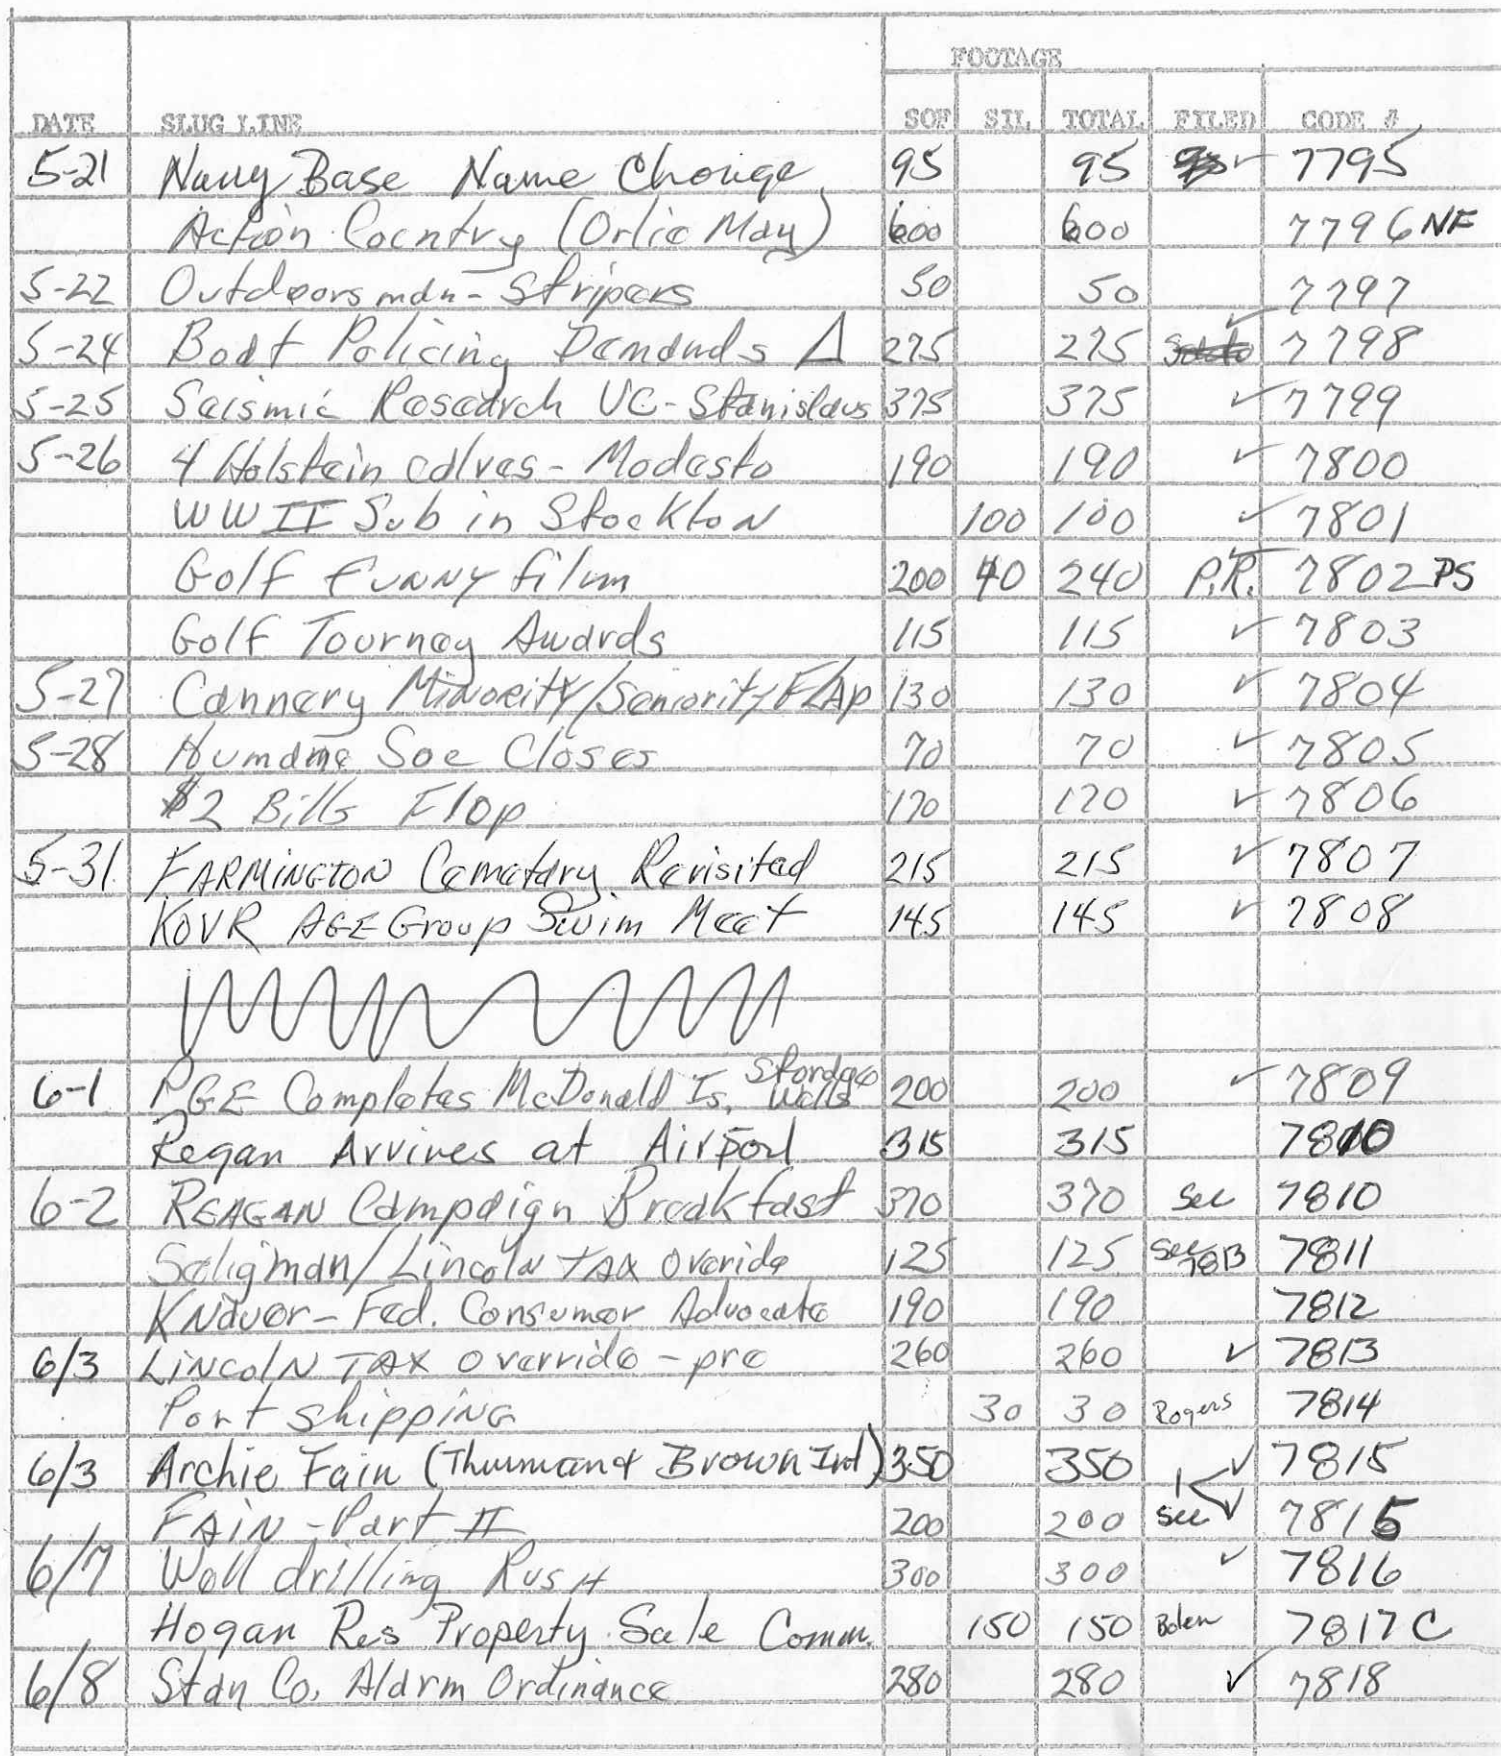 FOOTAGE
DATE SLUG LINE SOF SIL TOTAL FILED CODE #
5-21 Navy Base Name Change 95 95 ✓ 7795
Action Country (Orlie May) 600 600 7796 NF
5-22 Outdoorsman - Stripers 50 50 7797
5-24 Boat Policing Demands Δ 275 275 ✓ 7798
5-25 Seismic Research UC-Stanislaus 375 375 ✓ 7799
5-26 4 Holstein calves - Modesto 190 190 ✓ 7800
WWII Sub in Stockton 100 100 ✓ 7801
Golf Funny film 200 40 240 P.R. ✓ 7802 PS
Golf Tourney Awards 115 115 ✓ 7803
5-27 Cannery Minority/Seniority FLAP 130 130 ✓ 7804
5-28 Humane Soc Closes 70 70 ✓ 7805
$2 Bills Flop 170 170 ✓ 7806
5-31 FARMINGTON Cemetary Revisited 215 215 ✓ 7807
KOVR AGE Group Swim Meet 145 145 ✓ 7808
6-1 PGE Completes McDonald Is. Storage Wells 200 200 ✓ 7809
Regan Arrives at Airport 315 315 7810
6-2 REAGAN Campaign Breakfast 370 370 See 7810
Seligman/Lincoln TAX Overide 125 125 See 7813 7811
Knauer - Fed. Consumer Advocate 190 190 7812
6/3 LINCOLN TAX override - pre 260 260 ✓ 7813
Port shipping 30 30 Rogers 7814
6/3 Archie Fain (Thurman & Brown Int) 350 350 ✓ 7815
FAIN - Part II 200 200 See ✓ 7815
6/7 Well drilling Rush 300 300 ✓ 7816
Hogan Res Property Sale Comm. 150 150 Bolen 7817 C
6/8 Stan Co. Alarm Ordinance 280 280 ✓ 7818